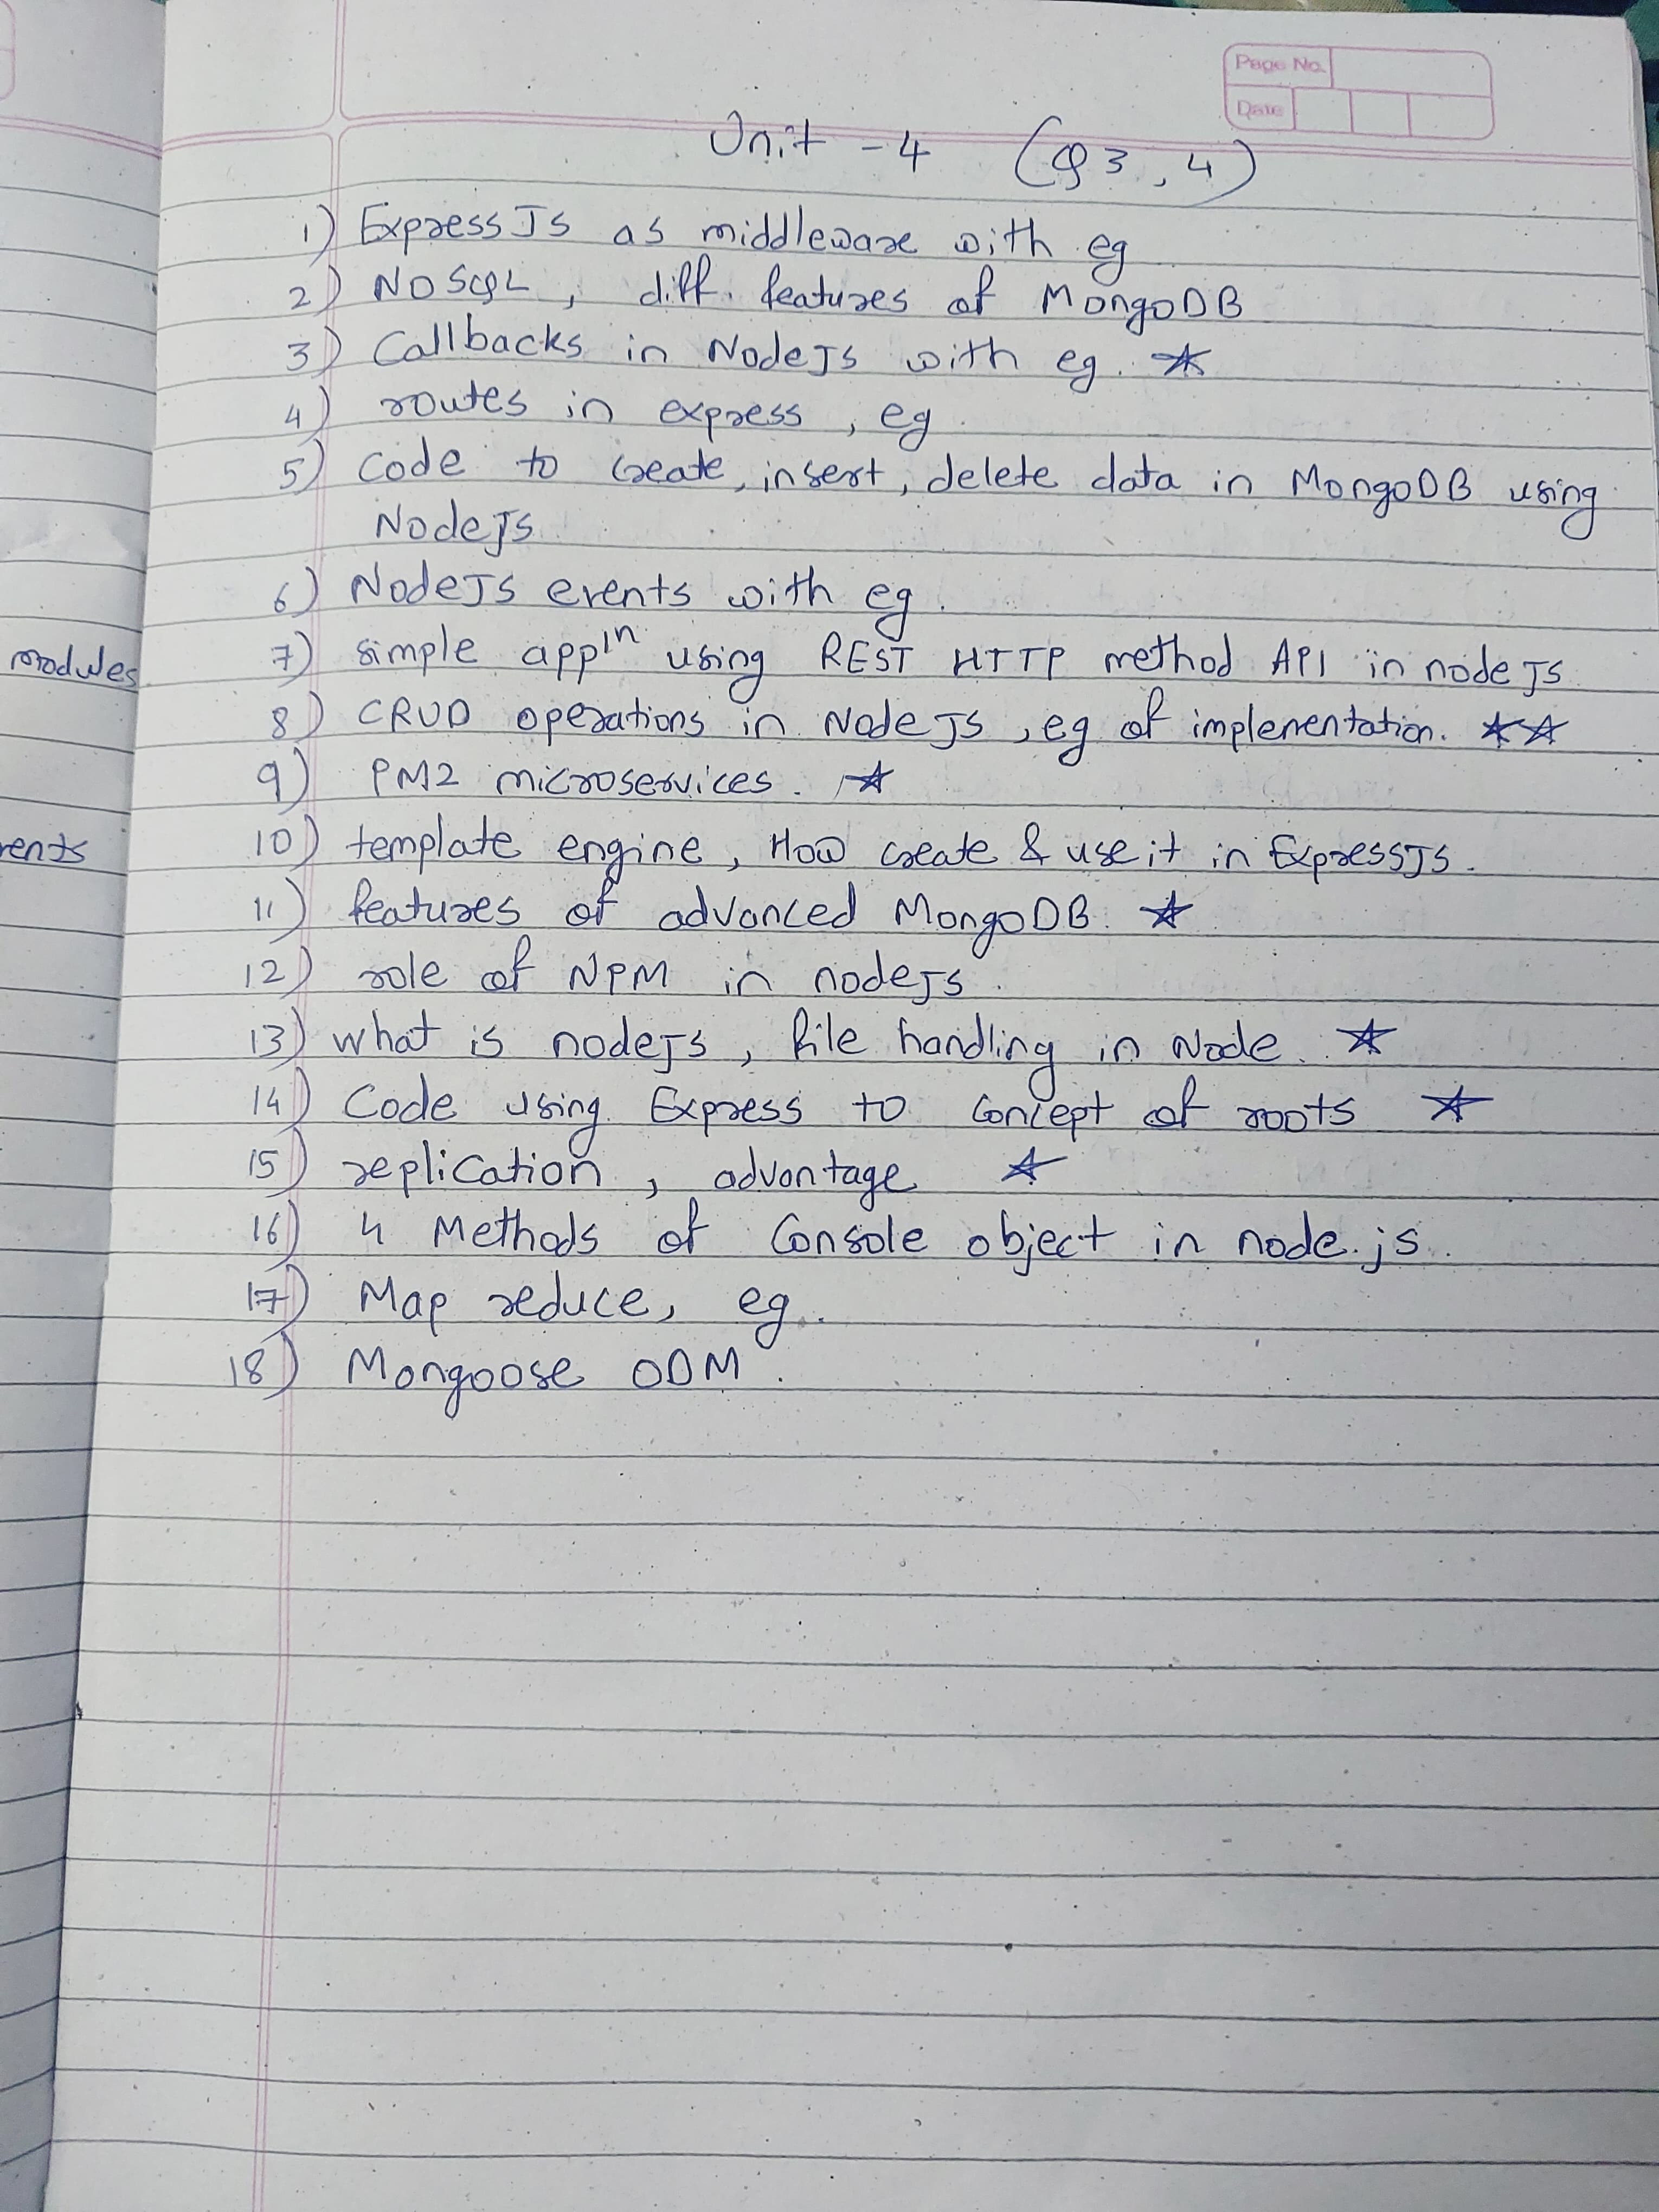 Page No.
Date
Unit - 4 (Q3, 4)
1) Express Js as middleware with eg
2) NOSQL, diff. features of MongoDB
3) Callbacks in NodeJs with eg. ☆
4) routes in express, eg.
5) Code to create, insert, delete data in MongoDB using
NodeJs.
6) NodeJs events with eg.
modules
7) simple appln using REST HTTP method API in node Js
8) CRUD operations in Node Js, eg of implementation. ☆☆
9) PM2 microservices. ☆
rents
10) template engine, How create & use it in ExpressJs.
11) features of advanced MongoDB. ☆
12) role of NPM in nodeJs.
13) what is nodeJs, file handling in Node. ☆
14) Code using Express to concept of roots ☆
15) replication, advantage ☆
16) 4 Methods of Console object in node.js.
17) Map reduce, eg.
18) Mongoose ODM.